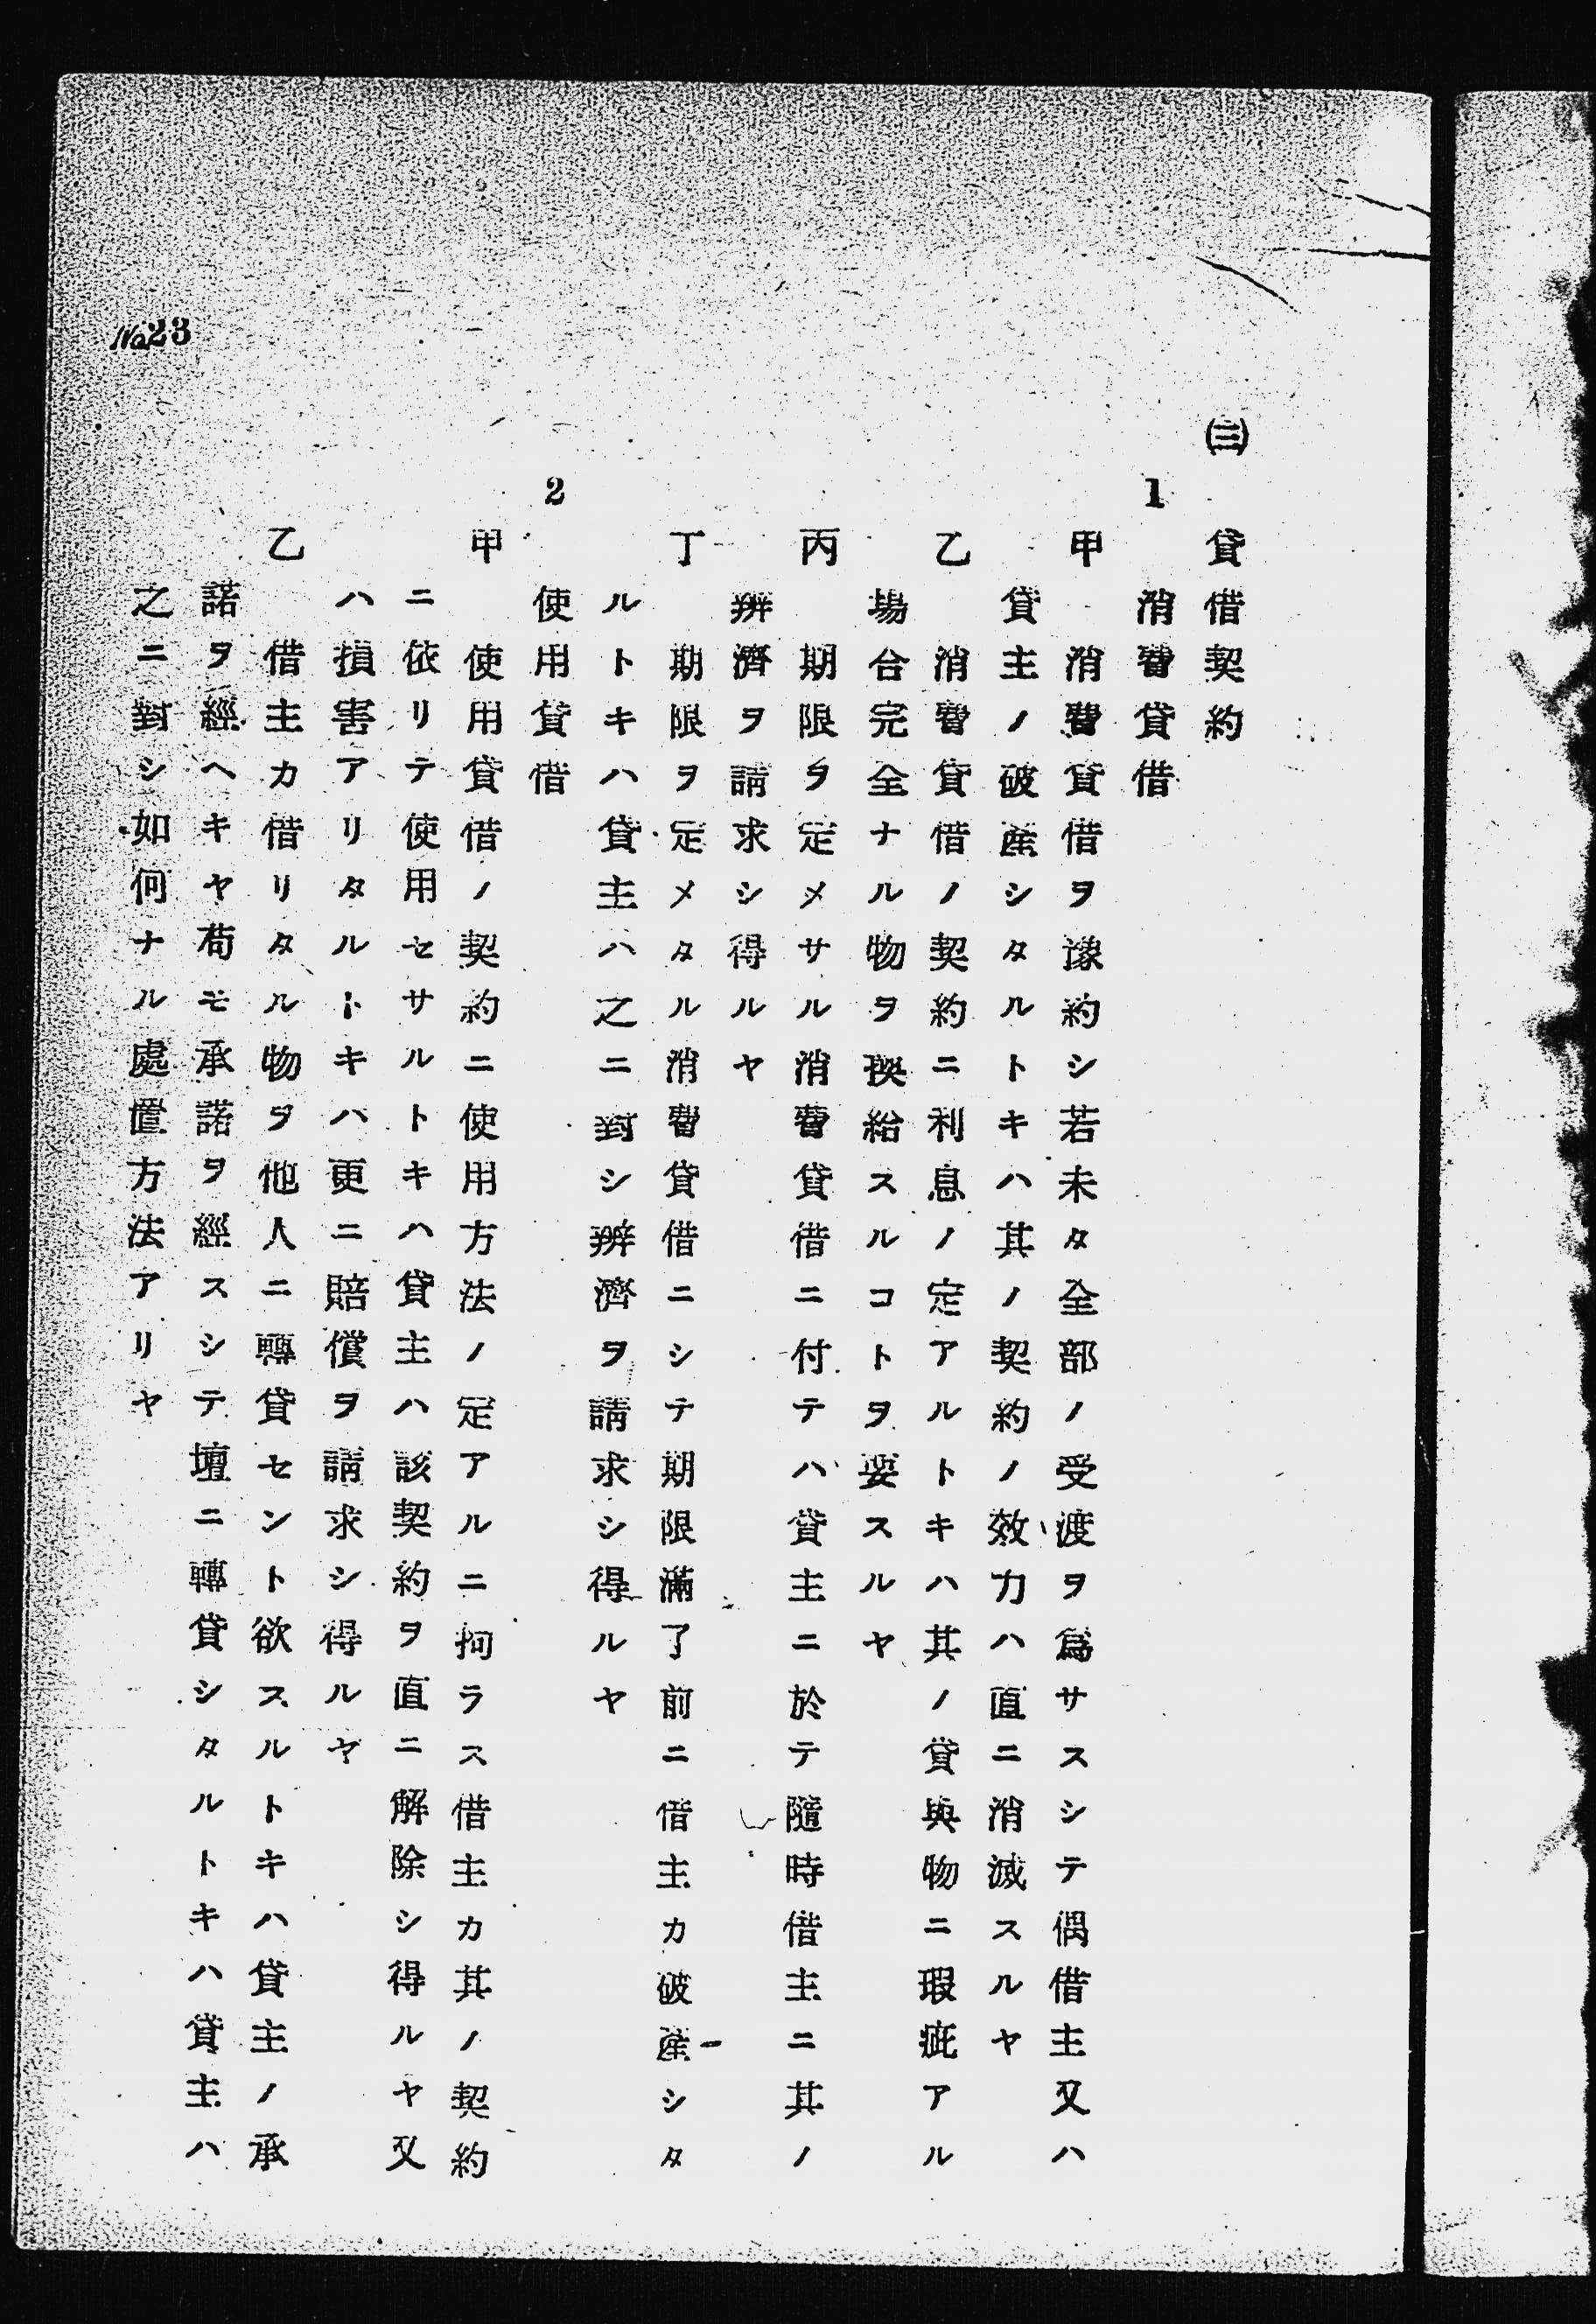 ㈢ 貸借契約
1 消費貸借
甲 消費貸借ヲ豫約シ若未タ全部ノ受渡ヲ爲サスシテ偶借主又ハ
貸主ノ破産シタルトキハ其ノ契約ノ效力ハ直ニ消滅スルヤ
乙 消費貸借ノ契約ニ利息ノ定アルトキハ其ノ貸與物ニ瑕疵アル
場合完全ナル物ヲ換給スルコトヲ要スルヤ
丙 期限ヲ定メサル消費貸借ニ付テハ貸主ニ於テ隨時借主ニ其ノ
辨濟ヲ請求シ得ルヤ
丁 期限ヲ定メタル消費貸借ニシテ期限滿了前ニ借主カ破産シタ
ルトキハ貸主ハ之ニ對シ辨濟ヲ請求シ得ルヤ
2 使用貸借
甲 使用貸借ノ契約ニ使用方法ノ定アルニ拘ラス借主カ其ノ契約
ニ依リテ使用セサルトキハ貸主ハ該契約ヲ直ニ解除シ得ルヤ又
ハ損害アリタルトキハ更ニ賠償ヲ請求シ得ルヤ
乙 借主カ借リタル物ヲ他人ニ轉貸セント欲スルトキハ貸主ノ承
諾ヲ經ヘキヤ苟モ承諾ヲ經スシテ壇ニ轉貸シタルトキハ貸主ハ
之ニ對シ如何ナル處置方法アリヤ
No23